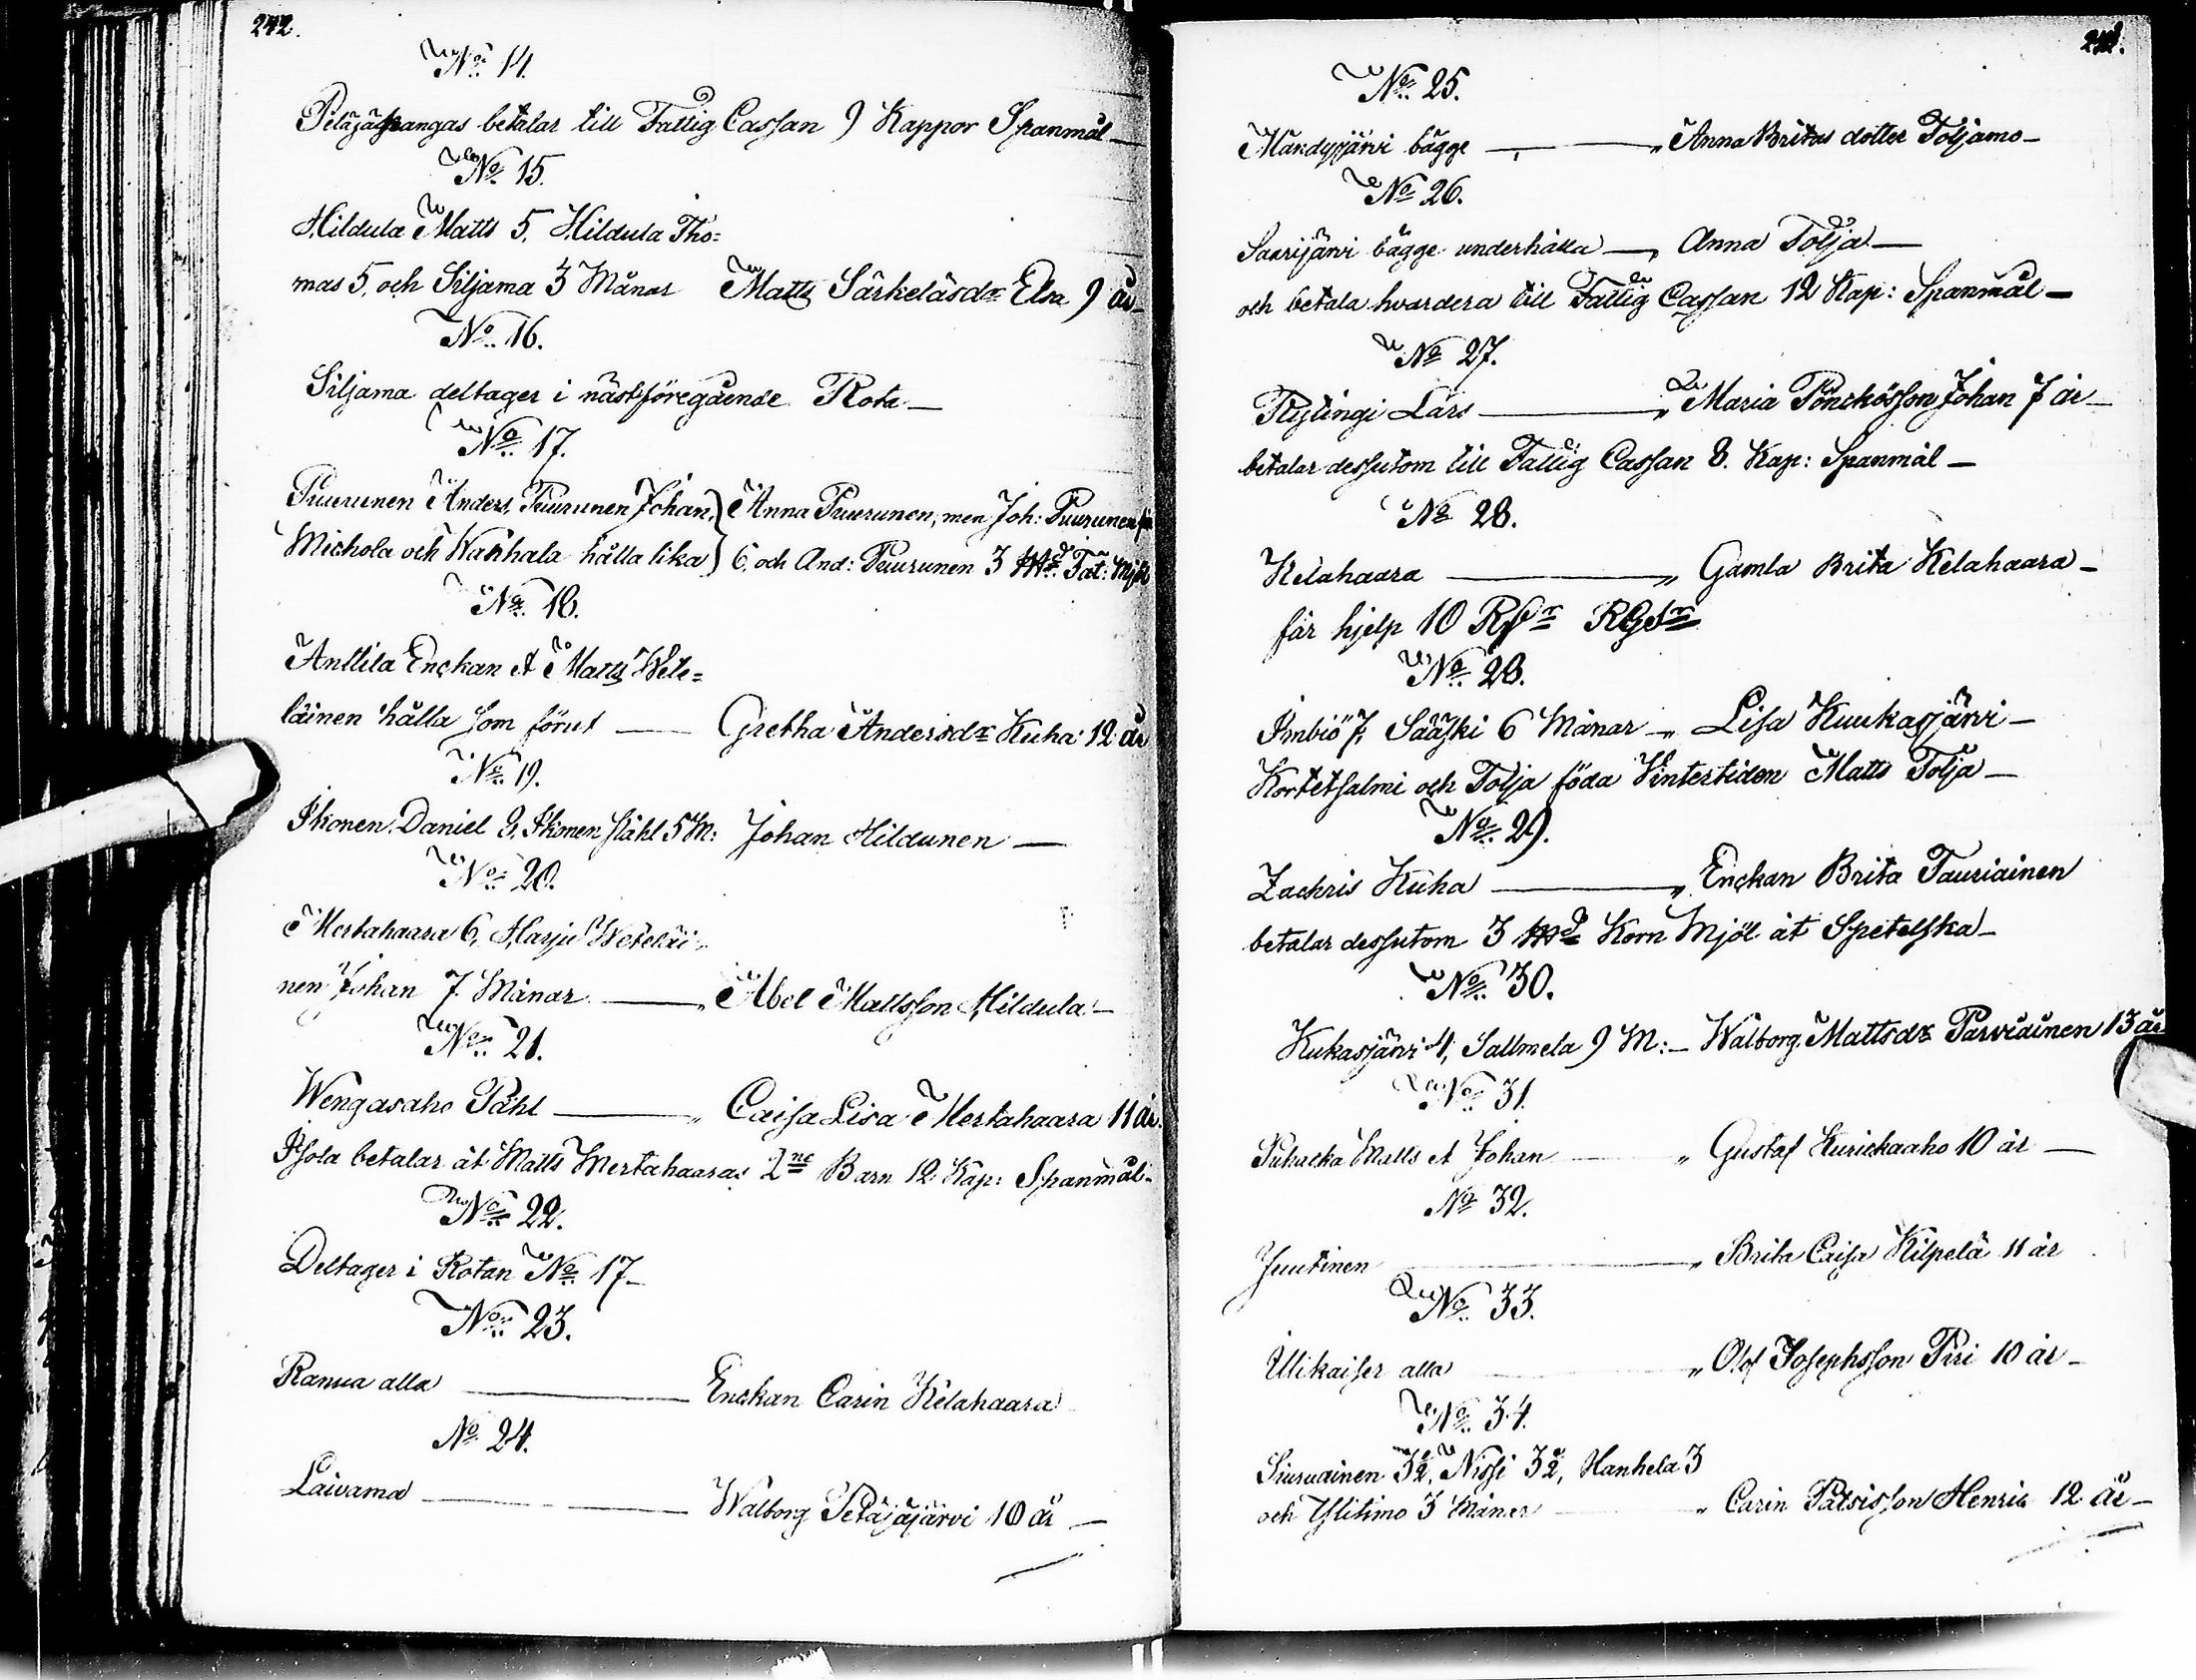 242.
No. 14.
Petäjäkangas betalar till Fattig Cassan 9 Kappor Spanmål
No. 15.
Hildula Matts 5, Hildula Tho=
mas 5, och Siljama 3 Månar Matts Särkeläsdr Elsa 9 år
No. 16.
Siljama deltager i nästföregående Rota
No. 17.
Puurunen Anders, Puurunen Johan, Anna Puurunen, men Joh: Puurunen
Michola och Wanhala hålla lika 6. och And: Puurunen 3 Tat: Mjöl
No. 18.
Anttila Enckan et Matts Wete=
läinen hålla som förut Gretha Andersdr Kuha 12 år
No. 19.
Ikonen Daniel 8, Ikonen Påhl 5 M: Johan Hildunen
No. 20.
Mertahaara 6, Harju Weteläi=
nen Johan 7 Månar Abel Mattsson Hildula
No. 21.
Wengasaho Påhl Caisa Lisa Mertahaara 11 år.
Isola betalar åt Matts Mertahaaras 2ne Barn 12 Kap: Spanmål
No. 22.
Deltager i Rotan No. 17
No. 23.
Ranua alla Enckan Carin Kelahaara
No. 24.
Laivama Walborg Petäjäjärvi 10 år
No. 25.
Mändyjärvi bägge Anna Britas dotter Toljamo
No. 26.
Saarijärvi bägge underhålla Anna Tolja
och betala hvardera till Fattig Cassan 12 Kap: Spanmål
No. 27.
Lars Maria Pönckösson Johan 7 år
betalar dessutom till Fattig Cassan 8. Kap: Spanmål
No. 28.
Kelahaara Gamla Brita Kelahaara
får hjelp 10 RGs
No. 28.
Imbiö 7, Sääski 6 Månar Lisa Kuukasjärvi
Kortetsalmi och Tolja föda Vintertiden Matts Tolja
No. 29.
Zachris Kuha Enckan Brita Tauriainen
betalar dessutom 3 Korn Mjöl åt Spetelska
No. 30.
Kukasjärvi 4, Sallmela 9 M: Walborg Mattsdr Parviainen 13 år
No. 31.
Puhacka Matts et Johan Gustaf Kurickaaho 10 år
No. 32.
Juutinen Brita Caisa Kilpelä 11 år
No. 33.
alla Olof Josephsson Piri 10 år
No. 34.
Siuruainen 3½, Nissi 3½, Hanhela 3
och Ylitimo 3 Månar Carin Patsisson Henric 12 år